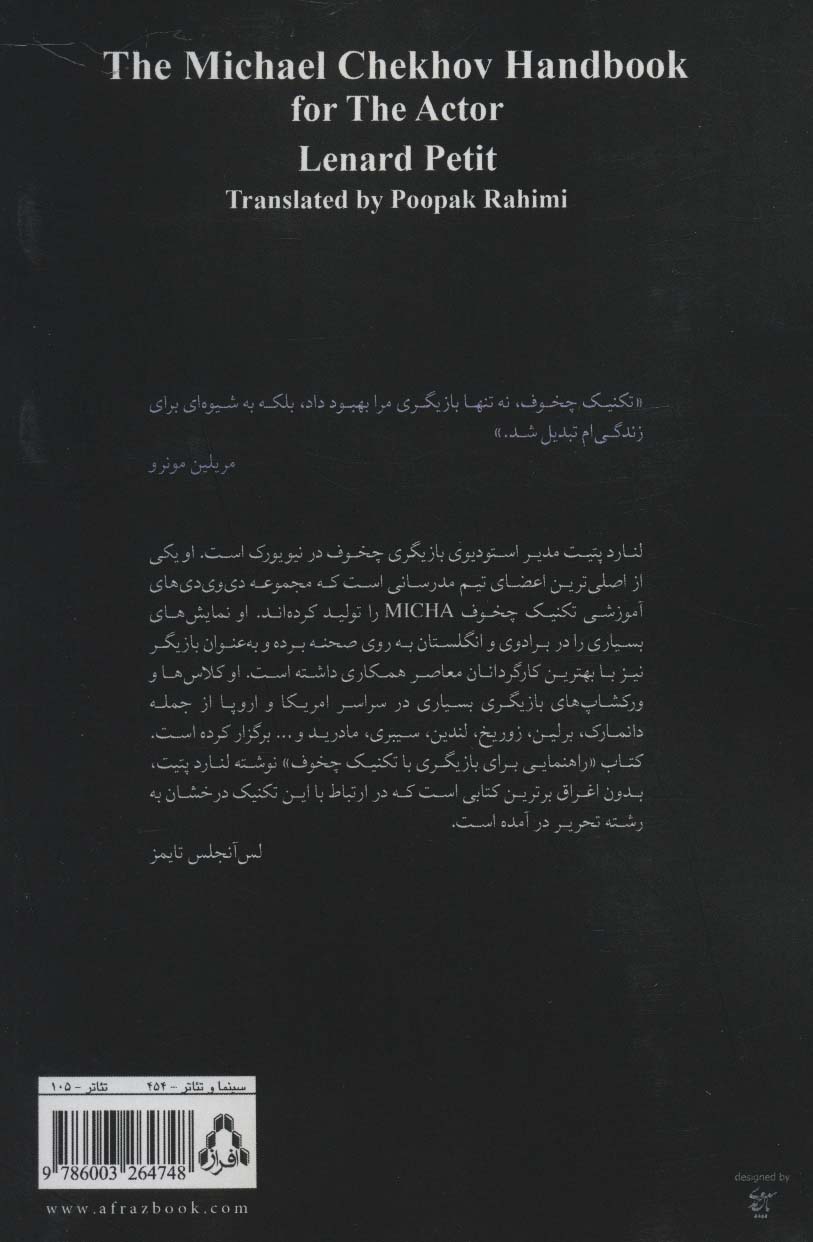 The Michael Chekhov Handbook
for The Actor
Lenard Petit
Translated by Poopak Rahimi
«تکنیک چخوف، نه تنها بازیگری مرا بهبود داد، بلکه به شیوه‌ای برای
زندگی‌ام تبدیل شد.»
مریلین مونرو
لنارد پتیت مدیر استودیوی بازیگری چخوف در نیویورک است. او یکی
از اصلی‌ترین اعضای تیم مدرسانی است که مجموعه دی‌وی‌دی‌های
آموزشی تکنیک چخوف MICHA را تولید کرده‌اند. او نمایش‌های
بسیاری را در برادوی و انگلستان به روی صحنه برده و به‌عنوان بازیگر
نیز با بهترین کارگردانان معاصر همکاری داشته است. او کلاس‌ها و
ورکشاپ‌های بازیگری بسیاری در سراسر امریکا و اروپا از جمله
دانمارک، برلین، زوریخ، لندین، سیبری، مادرید و... برگزار کرده است.
کتاب «راهنمایی برای بازیگری با تکنیک چخوف» نوشته لنارد پتیت،
بدون اغراق برترین کتابی است که در ارتباط با این تکنیک درخشان به
رشته تحریر در آمده است.
لس‌آنجلس تایمز
سینما و تئاتر - ۴۵۴ تئاتر - ۱۰۵
افراز
9 786003 264748
www.afrazbook.com
designed by